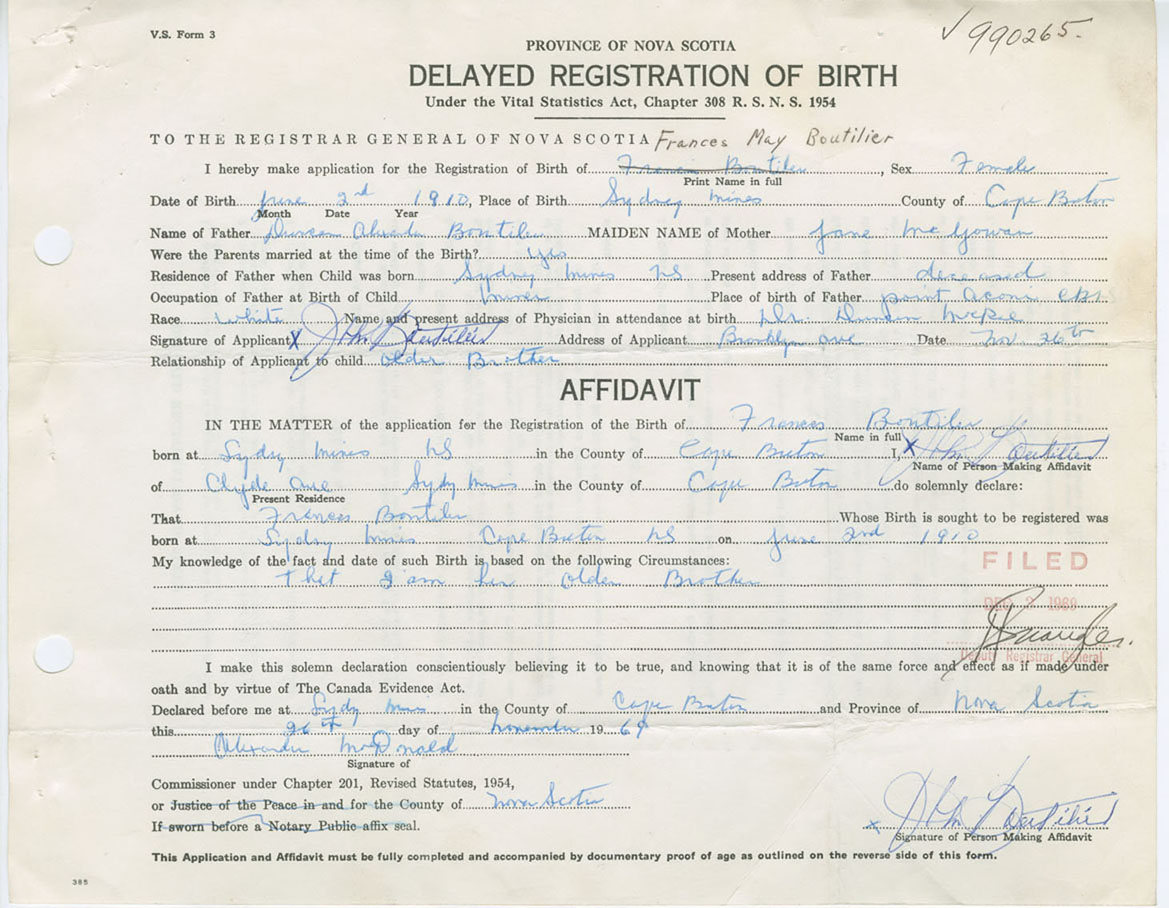 V.S. Form 3
✓ 990265.
PROVINCE OF NOVA SCOTIA
DELAYED REGISTRATION OF BIRTH
Under the Vital Statistics Act, Chapter 308 R. S. N. S. 1954
TO THE REGISTRAR GENERAL OF NOVA SCOTIA Frances May Boutilier
I hereby make application for the Registration of Birth of Frances Boutilier, Sex Female
Print Name in full
Date of Birth June 2nd 1910, Place of Birth Sydney Mines County of Cape Breton
Month Date Year
Name of Father Duncan Boutilier MAIDEN NAME of Mother Jane McGowan
Were the Parents married at the time of the Birth? yes
Residence of Father when Child was born Sydney Mines NS Present address of Father deceased
Occupation of Father at Birth of Child Miner Place of birth of Father point Aconi CBNS
Race White Name and present address of Physician in attendance at birth Dr. McRae
Signature of Applicant X John Boutilier Address of Applicant Brooklyn ave Date Nov 26th
Relationship of Applicant to child older Brother
AFFIDAVIT
IN THE MATTER of the application for the Registration of the Birth of Frances Boutilier
Name in full
born at Sydny Mines NS in the County of Cape Breton I, X John Boutilier
Name of Person Making Affidavit
of Clyde Ave Sydny Mines in the County of Cape Breton do solemnly declare:
Present Residence
That Frances Boutilier Whose Birth is sought to be registered was
born at Sydny Mines Cape Breton NS on June 2nd 1910
My knowledge of the fact and date of such Birth is based on the following Circumstances:
that I am her older Brother
FILED
DEC 2 1969
Deputy Registrar General
I make this solemn declaration conscientiously believing it to be true, and knowing that it is of the same force and effect as if made under
oath and by virtue of The Canada Evidence Act.
Declared before me at Sydny Mines in the County of Cape Breton and Province of Nova Scotia
this 26th day of November 1969
Alexander McDonald
Signature of
Commissioner under Chapter 201, Revised Statutes, 1954,
or Justice of the Peace in and for the County of Nova Scotia
If sworn before a Notary Public affix seal.
X John Boutilier
Signature of Person Making Affidavit
This Application and Affidavit must be fully completed and accompanied by documentary proof of age as outlined on the reverse side of this form.
385